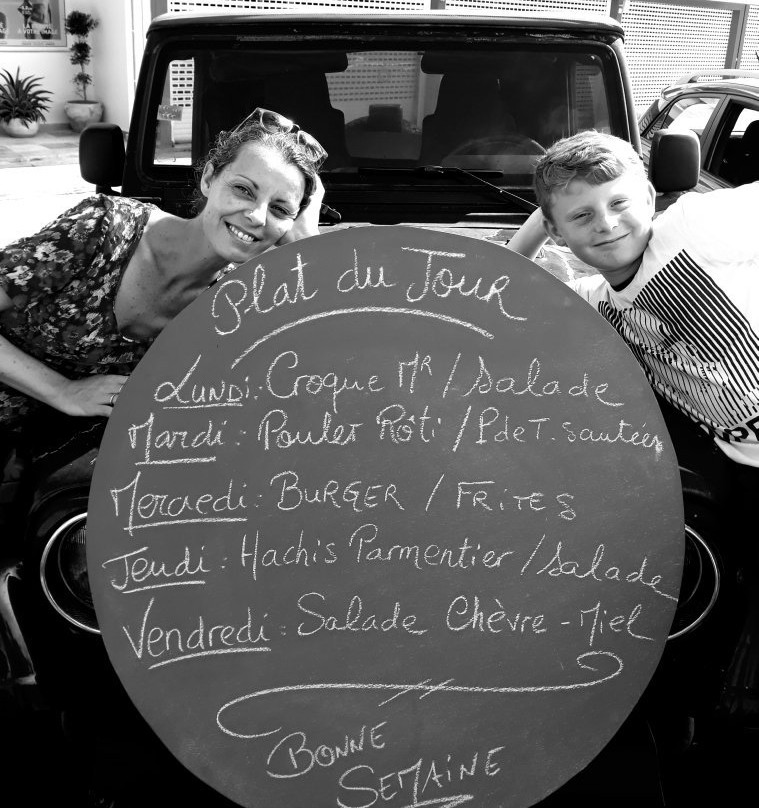 Plat du Jour
Lundi : Croque Mr / Salade
Mardi : Poulet Rôti / P de T. sautées
Mercredi : BURGER / FRITES
Jeudi : Hachis Parmentier / Salade
Vendredi : Salade Chèvre - Miel
BONNE
SEMAINE